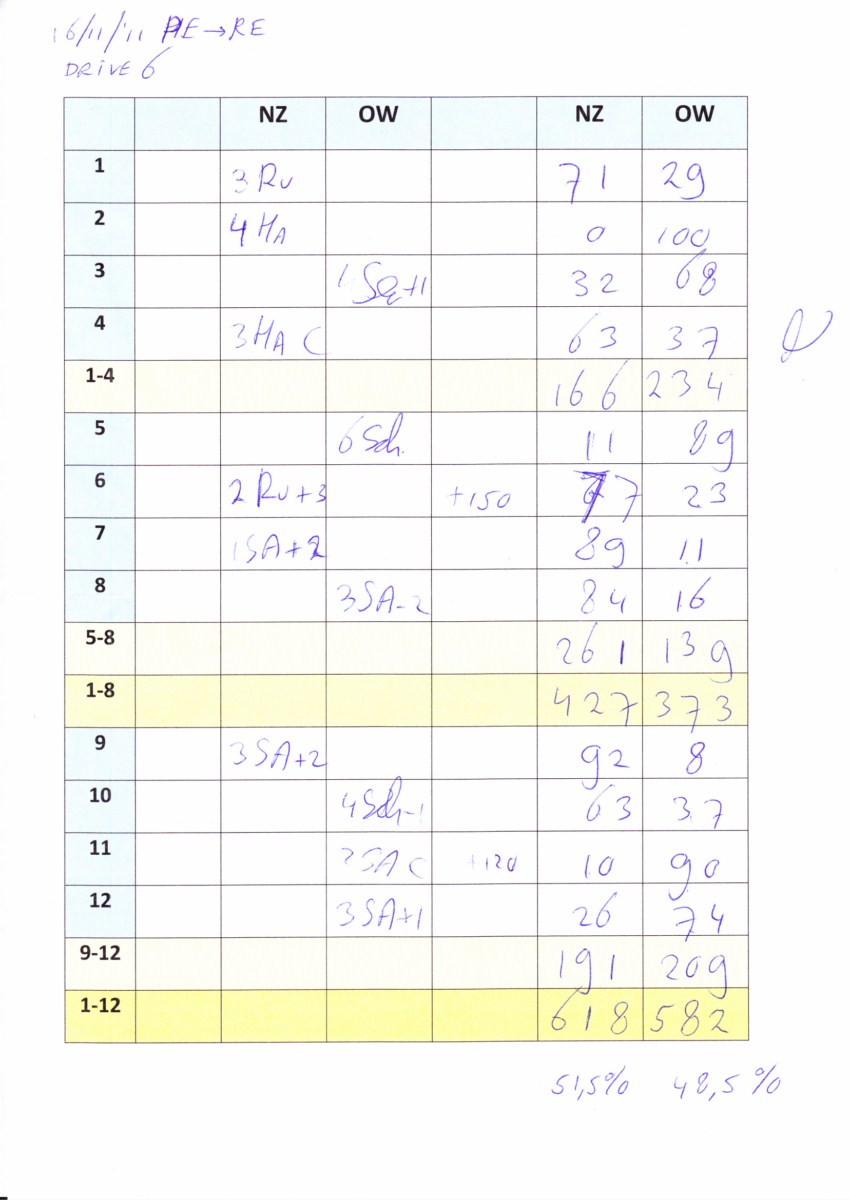 16/11/'11 PIE→RE
DRIVE 6
NZ OW NZ OW
1 3 Ru 71 29
2 4 HA 0 100
3 1 Sch+1 32 68
4 3 HA C 63 37
1-4 166 234
5 6 Sch. 11 89
6 2 Ru+3 +150 77 23
7 1SA+2 89 11
8 3SA-2 84 16
5-8 261 139
1-8 427 373
9 3SA+2 92 8
10 4Sch-1 63 37
11 2SA C +120 10 90
12 3SA+1 26 74
9-12 191 209
1-12 618 582
51,5% 48,5%